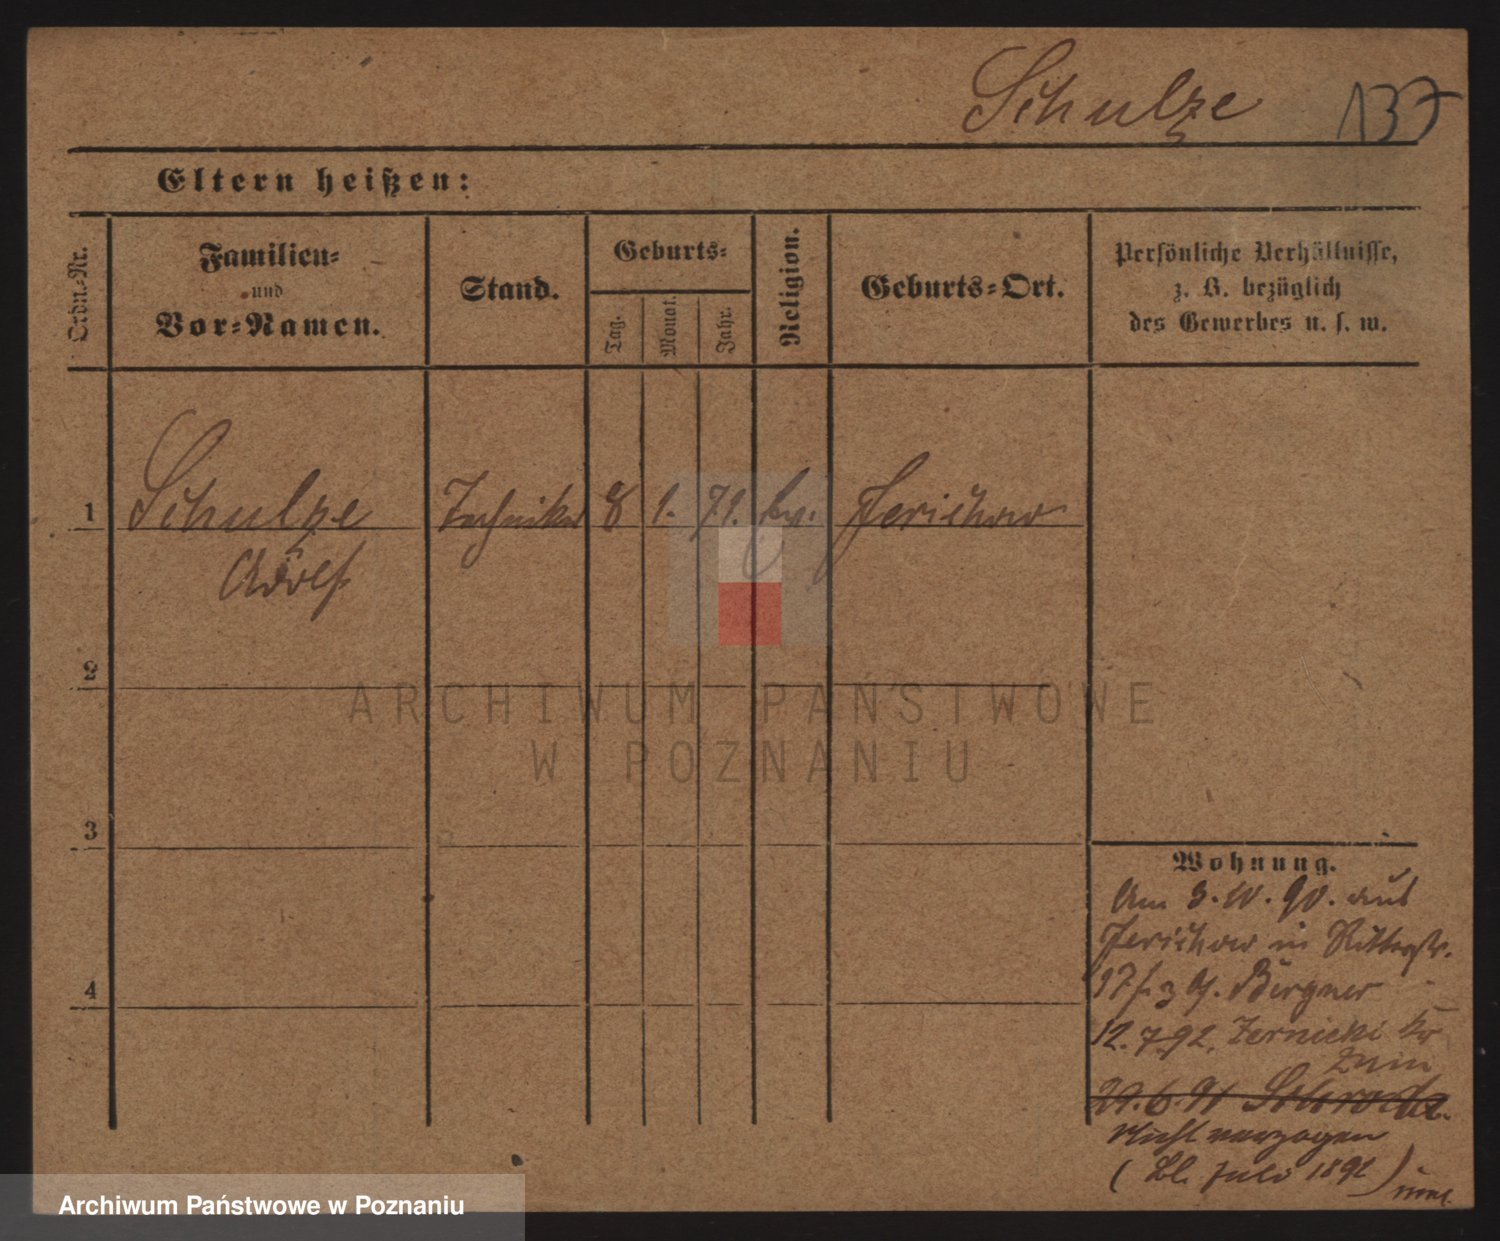 Schulze 137
Eltern heißen:
Ordn.-Nr.
Familien-
und
Vor-Namen.
Stand.
Geburts-
Tag.
Monat.
Jahr.
Religion.
Geburts-Ort.
Persönliche Verhältnisse,
z. B. bezüglich
des Gewerbes u. s. w.
1 Schulze Techniker 8 1. 71. ev. Jerichow
Adolf
2
3
4
Wohnung.
Am 3. 10. 90. aus
Jerichow in Ritterstr.
17 Bürgner
12. 7. 92. Zernicki Kr
Znin
29. 6. 91 Schroda.
Nicht verzogen
( Bl. Juli 1892 )
ARCHIWUM PAŃSTWOWE
W POZNANIU
Archiwum Państwowe w Poznaniu